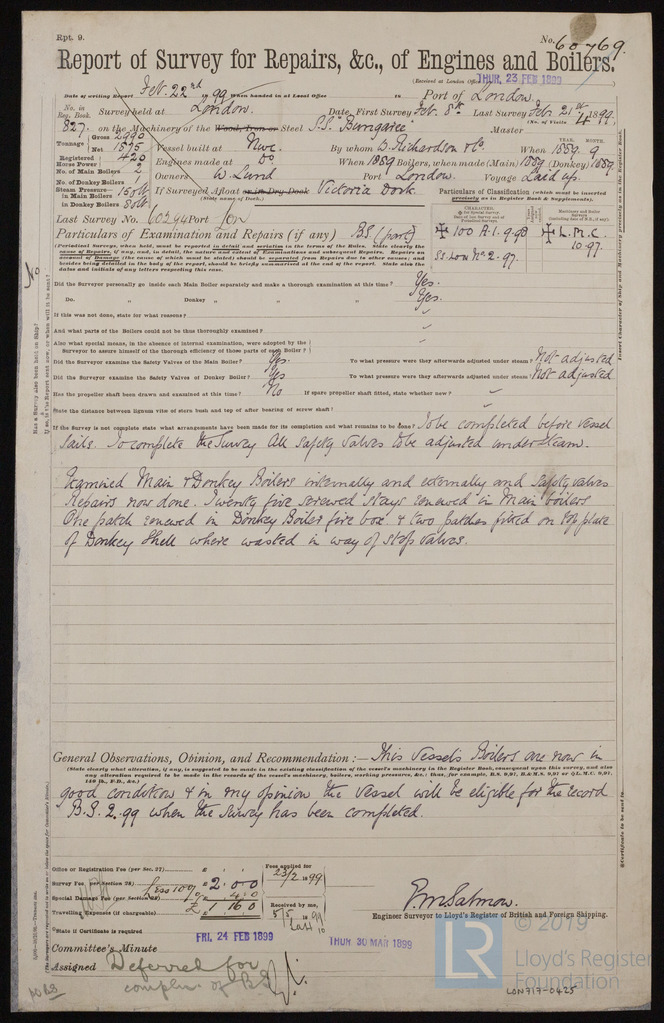 Rpt. 9.
No. 60769.
Report of Survey for Repairs, &c., of Engines and Boilers.
(Received at London Office THUR. 23 FEB 1899)
Date of writing Report Feb. 22nd 1899 When handed in at Local Office 18 Port of London.
No. in Reg. Book. Survey held at London. Date, First Survey Feb. 8th Last Survey Feb. 21st 1899.
(No. of Visits 4)
827. on the Machinery of the Wood, Iron or Steel S.S. "Bungaree" Master
Tonnage Gross 2990 Net 1575 Vessel built at Nwc. By whom W. Richardson & Co. When YEAR. 1889. MONTH. 9
Registered Horse Power 420 Engines made at Do When 1889 Boilers, when made (Main) 1889 (Donkey) 1889.
No. of Main Boilers 2 Owners W. Lund Port London. Voyage Laid up.
No. of Donkey Boilers 1
Steam Pressure in Main Boilers 150 lb If Surveyed Afloat or in Dry Dock Victoria Dock.
(State name of Dock.)
in Donkey Boilers 80 lb.
Particulars of Classification (which must be inserted precisely as in Register Book & Supplements).
Last Survey No. 60394 Port Lon
CHARACTER.
Machinery and Boiler Surveys
100 A.1. 9.98
S.S. Lon No. 2-97.
L.M.C. 10.97
Particulars of Examination and Repairs (if any) BS (part)
(Periodical Surveys, when held, must be reported in detail and seriatim in the terms of the Rules. State clearly the cause of Repairs, if any, and, in detail, the nature and extent of Examinations and subsequent Repairs. Repairs on account of Damage (the cause of which must be stated) should be separated from Repairs due to other causes; and besides being detailed in the body of the report, should be briefly summarised at the end of the report. State also the dates and initials of any letters respecting this case.
Did the Surveyor personally go inside each Main Boiler separately and make a thorough examination at this time? Yes.
Do. " Donkey " " " " Yes.
If this was not done, state for what reasons?
And what parts of the Boilers could not be thus thoroughly examined?
Also what special means, in the absence of internal examination, were adopted by the Surveyor to assure himself of the thorough efficiency of those parts of each Boiler?
Did the Surveyor examine the Safety Valves of the Main Boiler? Yes. To what pressure were they afterwards adjusted under steam? Not adjusted
Did the Surveyor examine the Safety Valves of Donkey Boiler? Yes To what pressure were they afterwards adjusted under steam? Not adjusted
Has the propeller shaft been drawn and examined at this time? No If spare propeller shaft fitted, state whether new?
State the distance between lignum vitæ of stern bush and top of after bearing of screw shaft?
If the Survey is not complete state what arrangements have been made for its completion and what remains to be done? To be completed before vessel
sails. To complete the Survey All safety valves to be adjusted under steam.
Examined Main & Donkey Boilers internally and externally and safety valves
Repairs now done. Twenty five screwed stays renewed in Main boilers
One patch renewed in Donkey Boiler fire box & two patches fitted on top plate
of Donkey Shell where wasted in way of stop valves.
General Observations, Opinion, and Recommendation:— This vessel's Boilers are now in
(State clearly what alteration, if any, is suggested to be made in the existing classification of the vessel's machinery in the Register Book, consequent upon this survey, and also any alteration required to be made in the records of the vessel's machinery, boilers, working pressures, &c.: thus, for example, B.S. 9,97, B.&M.S. 9,97 or L.M.C. 9,97, 140 lb., F.D., &c.)
good condition & in my opinion the vessel will be eligible for the record
B.S. 2.99 when the survey has been completed.
Office or Registration Fee (per Sec. 27)... £
Survey Fee (per Section 28) Less 10% £ 2.0.0
Special Damage Fee (per Section 28) 4.0
Travelling Expenses (if chargeable) £ 1.16.0
Fees applied for 23/2 1899
Received by me, 5/5 1899
P. M. Salmon.
Engineer Surveyor to Lloyd's Register of British and Foreign Shipping.
State if Certificate is required
Committee's Minute FRI. 24 FEB 1899 THUR 30 MAR 1899
Assigned Deferred for
complen. of BS
Has a Survey also been held on Ship? No
If so, is the Report sent now, or when will it be sent?
Insert Character of Ship and Machinery precisely as in the Register Book.
Certificate to be sent to
© 2019
LR
Lloyd's Register
Foundation
LON717-0425